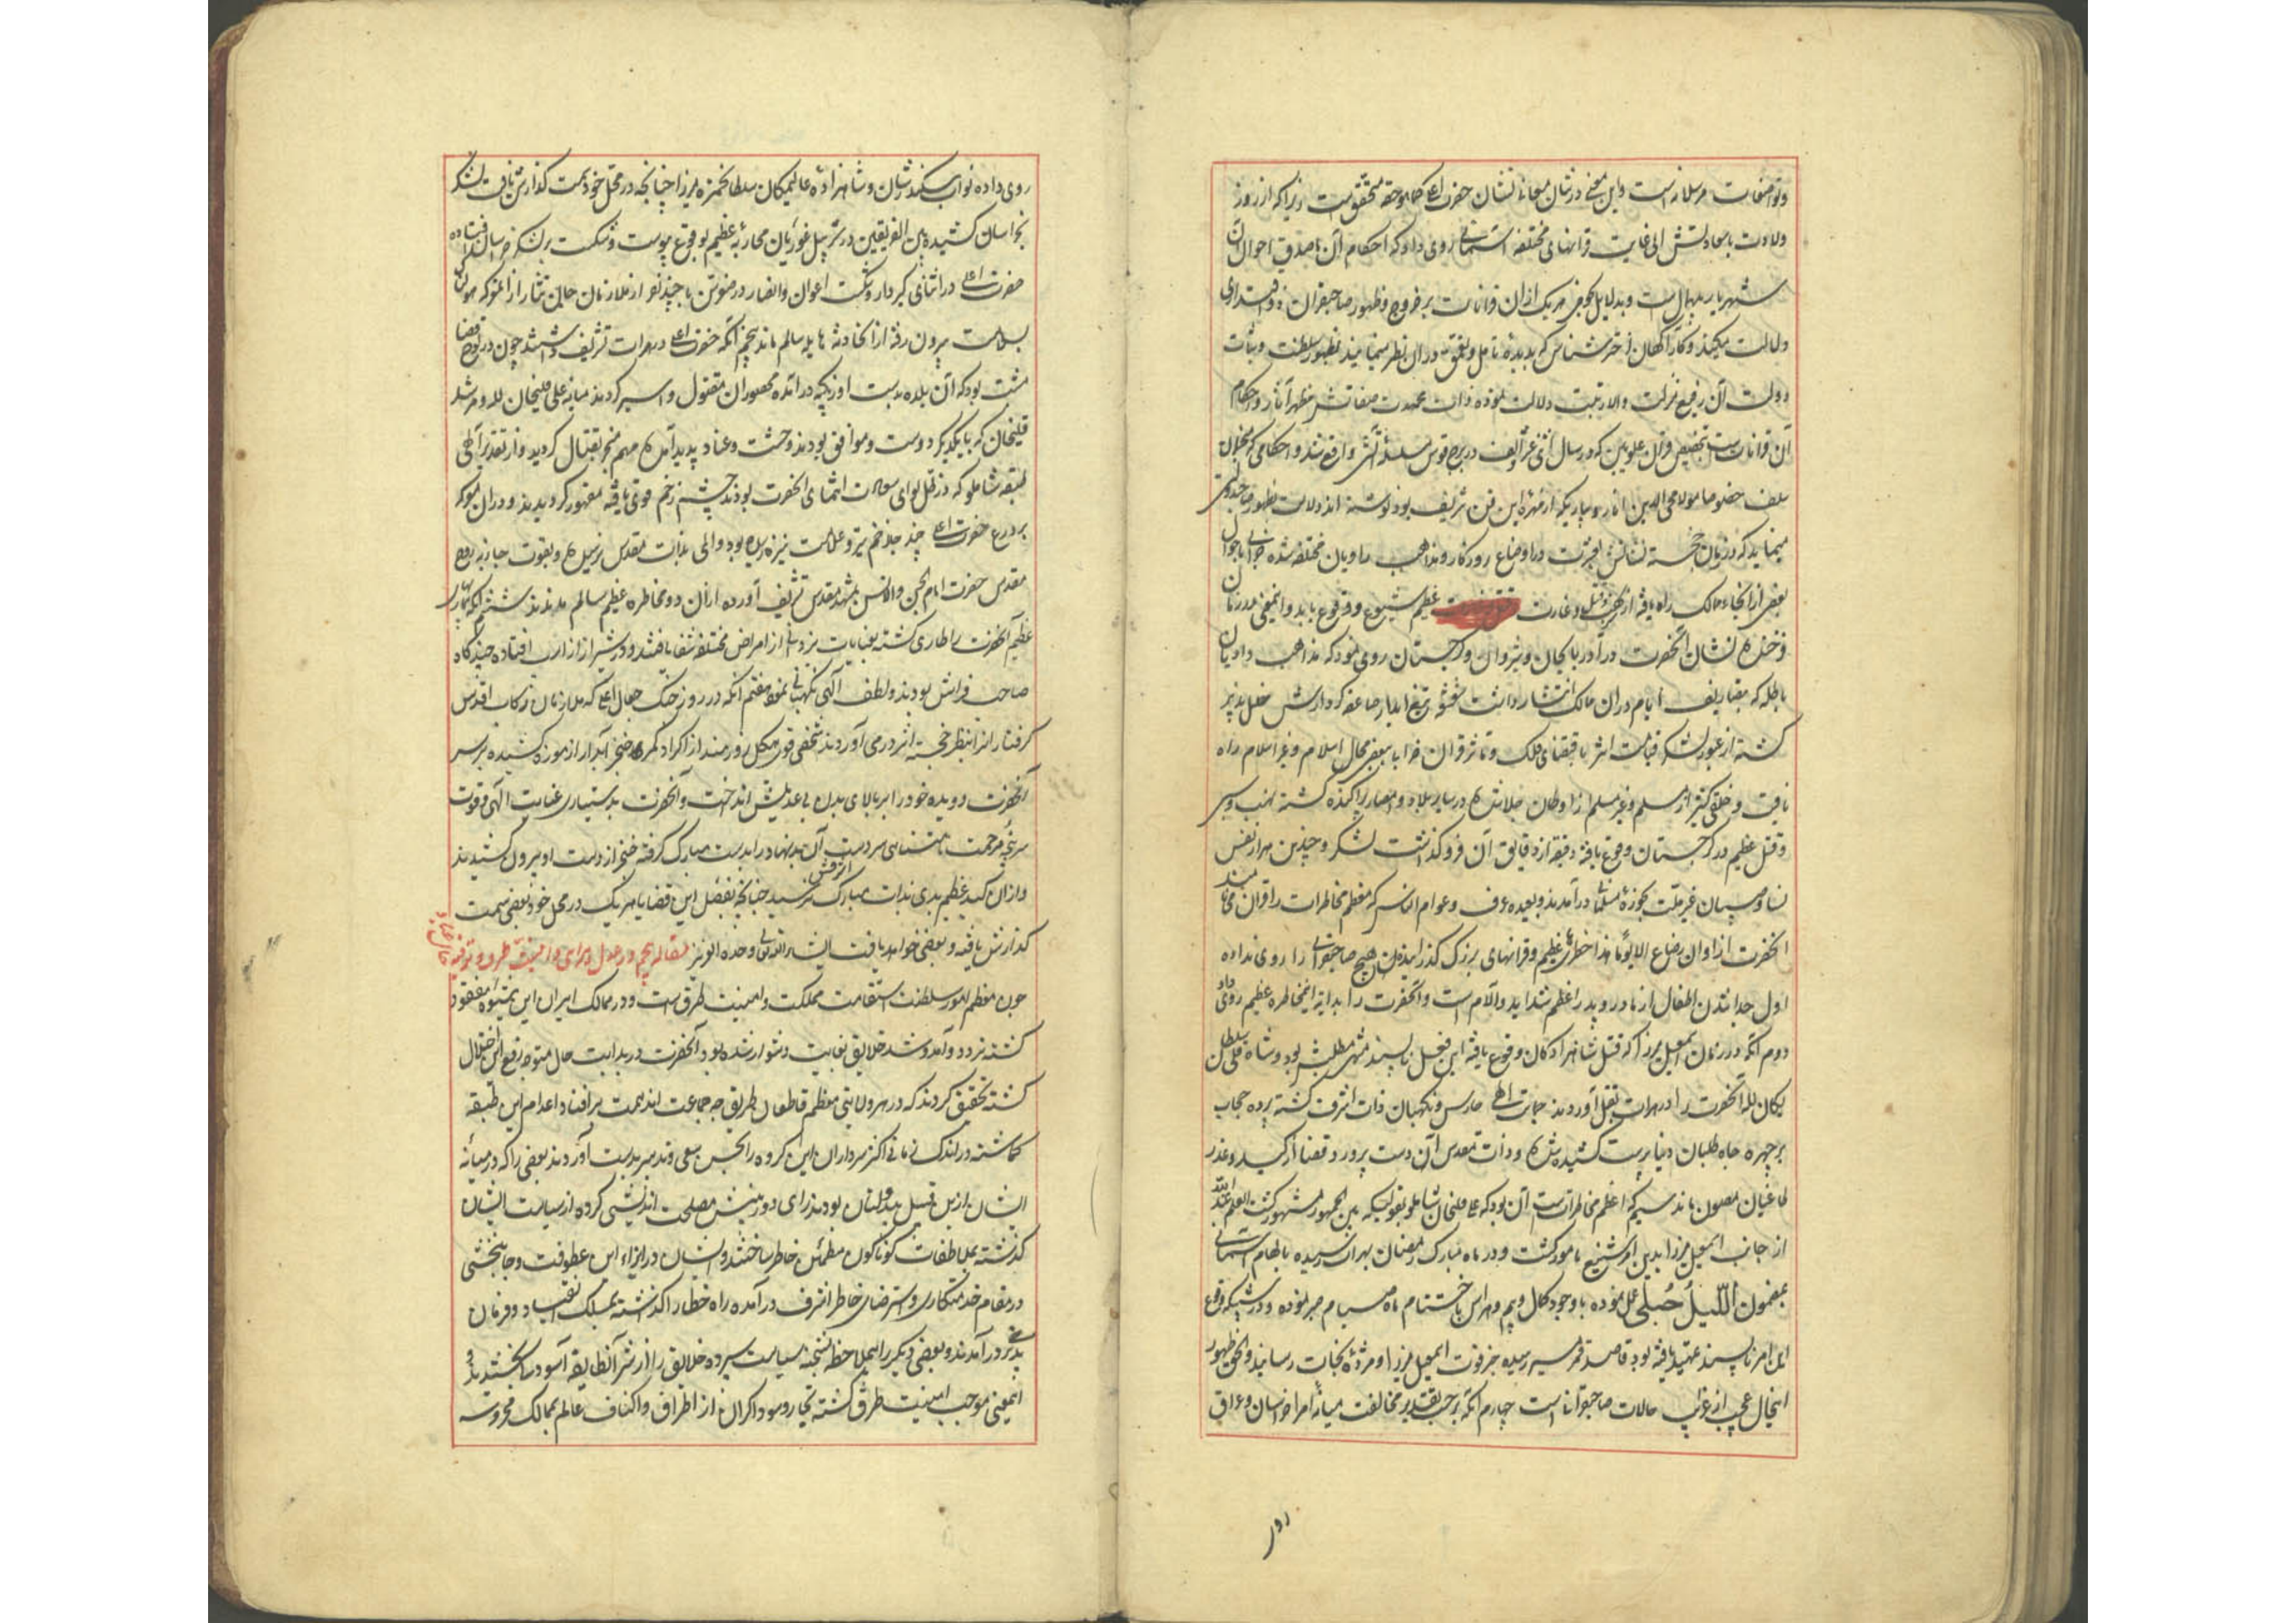 و تواضعات مرسلانه است و این معنی در شأن معانی نشان حضرت اعلی کماهو حقه متحقق است زیرا که از روز
ولادت باسعادتش الی غایت قرانهای مختلفه آسمانی روی داد که احکام آن با صدق احوال آن
شهریار بیهمال است و بدلایل نجومی هر یک از آن قرانات بر خروج و ظهور صاحبقران ذوی اقتداری
دلالت میکند و کارآگهان اختر شناس که بدیده تامل و تعمق در آن نظر مینمایند بظهور سلطنت و ثبات
دولت آن رفیع منزلت والا رتبت دلالت نموده ذات محمدت صفاتش مظهر آثار و احکام
آن قرانات است بتخصیص قران علویین که در سال اثنی عشر و الف در برج قوس مثلثه آتشی واقع شد و احکامی که منجمان
سلف خصوصا مولانا محیی الدین اناری و سایر که از مهره این فن شریف بودند نوشته اند دلالت بظهور صاحبدولتی
مینماید که در زمان خجسته نشانش در اوضاع روزگار و مذاهب و ادیان مختلفه شده
بعضی از انحاء ممالک راه یافته از قتل و غارت عظیم شیوع و وقوع یابد و این معنی در زمان
فرخنده نشان آنحضرت در آذربایجان و شیروان و گرجستان روی نمود که مذاهب و ادیان
باطله که بتصاریف ایام در آن ممالک انتشار داشت تیغ آبدار صاعقه کردارش خلل پذیر
گشته از عبور لشکر قیامت اثر باقتضای فلک و تأثر قران خرابی ببعضی محال اسلام و غیر اسلام راه
یافت و خلقی کثیر از مسلم و غیر مسلم از اوطان جلا شده در سایر بلاد و امصار پراکنده گشته نهب و سبی
و قتل عظیم در گرجستان وقوع یافته دقیقه از دقایق آن فرو گذاشت نشد و چندین هزار نفس
نسا و صبیان غیر ملت بحوزه مسلمانی درآمدند و بعیده عرف و عوام الناس که معظم مخاطرات را قران می نامند
آنحضرت از اوان رضاع الی یومنا هذا خطرهای عظیم و قرانهای بزرگ گذرانیده اند هیچ صاحبقرانی را روی نداده
اول جدا شدن اطفال از مادر و پدر اعظم شداید و آلام است و آنحضرت را بدایة این مخاطره عظیم روی داد
دوم آنکه در زمان اسمعیل میرزا که قتل شاهزادگان وقوع یافته این فعل ناپسند مطلبش بود و شاه قلی سلطان
یکان لله آنحضرت را در هرات بقتل آوردند حمایت الهی حارس و نگهبان ذات اشرف گشته پرده حجاب
بر چهره جاه طلبان دنیا پرست کشیده شده و ذات مقدس آن دست پرورد قضا از کید و غدر
طاغیان مصون ماند سیم که اعظم مخاطرات است آن بود که علیقلیخان شاملو بقولی که بین الجمهور مشهور گشت العلم عند الله
از جانب اسمعیل میرزا بدین امر شنیع مامور گشت و در ماه مبارک رمضان بهراة رسیده بالهام آسمانی
بمضمون اللّیلُ حُبلی عمل نموده با وجود کمال وهم و هراس تا اختتام ماه صیام صبر نموده و در شبی که وقوع
این امر ناپسند تمهید یافته بود قاصد قمر سیر رسیده خبر فوت اسمعیل میرزا و مژده نجات رسانید و الحق ظهور
اینحال عجیب از غرایب حالات صاحبقرانی است چهارم آنکه بر حسب تقدیر مخالفت میانه امراء خراسان و عراق
روی
روی داده نواب سکندر شان و شاهزاده عالیمکان سلطان حمزه میرزا چنانچه در محل خود سمت گذارش یافت لشکر
بخراسان کشیده بین الفریقین در سر پل غوریان محاربه عظیم بوقوع پیوست و شکست بر لشکر خراسان افتاده
حضرت اعلی در اثنای گیر و دار و شکست اعوان و انصار در ضوتن با چند نفر از ملازمان جان نثار از آن معرکه هولناک
بسلامت بیرون رفته از آن حادثه هایله سالم ماند پنجم آنکه حضرت اعلی در هرات تشریف داشتند چون در لوح قضا
مثبت بود که آن بلده بدست اوزبکیه درآمده محصوران مقتول و اسیر گردند میانه علی قلیخان لله و مرشد
قلیخان که با یکدیگر دوست و موافق بودند وحشت و عناد پدید آمده مهم منجر بقتال گردید و از تقدیر الهی
طبقه شاملو که در ظل لوای سعادت انتمای آنحضرت بودند چشم زخم قوی یافته مقهور گردیدند و در آن معرکه
بر درع حضرت اعلی چند جا زخم تیر و علامت نیزه رسیده بود و المی بذات مقدس نرسیده و بقوت جاذبه روح
مقدس حضرت امام الجن و الانس بمشهد مقدس تشریف آورده از آن دو مخاطره عظیم سالم ماندند ششم آنکه بیماریهای
عظیم آنحضرت را طاری گشته بعنایات یزدانی از امراض مختلفه شفا یافتند و در شیراز از ارب افتاده چندگاه
صاحب فراش بودند و لطف الهی نگهبانی نموده هفتم آنکه در روز جنگ جغال اغلی که ملازمان رکاب اقدس
گرفتاران را بنظر خجسته اثر درمی آوردند شخصی قوی هیکل زورمند از اکراد مکری خنجر آبدار از موزه کشیده بر سر
آنحضرت دویده خود را بر بالای بدن بی عدیلش انداخت و آنحضرت بدستیاری عنایت الهی و قوت
سرپنجه مرحمت نامتناهی سر دست آن بدنهاد را بدست مبارک گرفته خنجر از دست او بیرون کشیدند
و از آن کید عظیم بدی بذات مبارک اشرفش نرسید چنانچه تفصیل این قضایا هر یک در محل خود بعضی سمت
گذارش یافته و بعضی خواهد یافت انشاء الله تعالی وحده العزیز مقاله پنجم در عدل و دادی و امنیت طرق و ترفیه حال عباد
چون معظم امور سلطنت استقامت مملکت و امنیت طرق است و در ممالک ایران این شیوه مفقود
گشته تردد و آمد و شد خلایق بغایت دشوار شده بود آنحضرت در بدایت حال متوجه رفع این اختلال
گشته تحقیق کردند که در هر ولایتی معظم قاطعان طریق چه جماعت اند همت بر افناء و اعدام این طبقه
گماشته در اندک زمانی اکثر سرداران این گروه را بحسن سعی و تدبیر بدست آوردند بعضی را که در میانه
ایشان از این قبیل بیدولتان بودند رای دوربینش مصلحت اندیشی کرده از سیاست ایشان
گذشته بملاطفات گوناگون مطمئن خاطر ساختند و ایشان در ازاء این عطوفت و جانبخشی
در مقام خدمتکاری و استرضای خاطر اشرف درآمده راه خطا را گذاشته بمسلک انقیاد و فرمان
پذیری درآمدند و بعضی دیگر را بیملاحظه بشحنه سیاست سپرده خلایق را از شر آن طایفه آسوده ساختند و
اینمعنی موجب امنیت طرق گشته تجار و سوداگران از اطراف و اکناف عالم بممالک محروسه